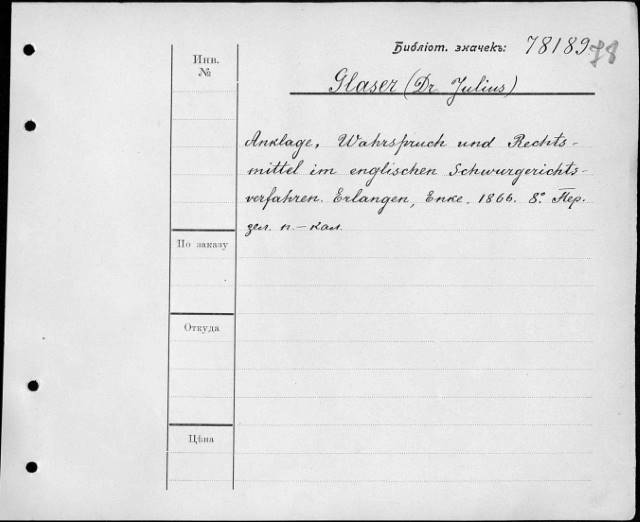 Библіот. значекъ: 78189
78
Инв.
№
Glaser (Dr. Julius)
Anklage, Wahrspruch und Rechts-
mittel im englischen Schwurgerichts-
verfahren. Erlangen, Enke. 1866. 8°. Пер.
зел. п.-кал.
По заказу
Откуда
Цѣна